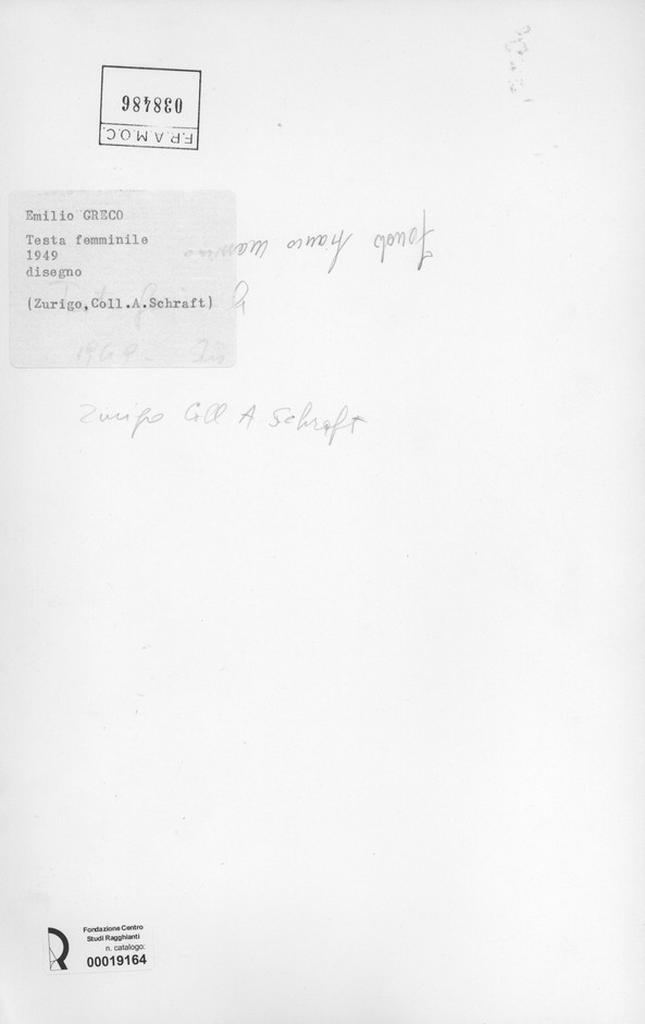 038486
F.R.A.M.O.C.
Emilio GRECO
Testa femminile
1949
disegno
(Zurigo,Coll.A.Schraft)
Fondo
Zurigo Coll A Schraft
Fondazione Centro
Studi Ragghianti
n. catalogo:
00019164